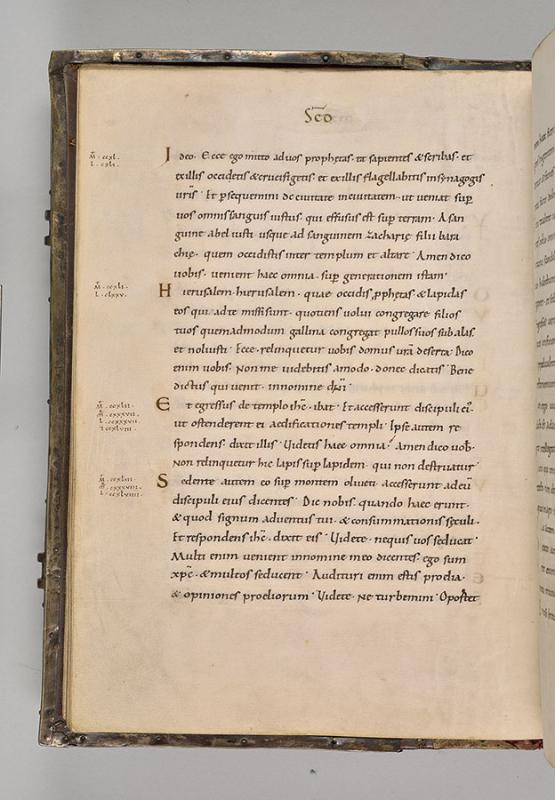 Scō
Ideo. Ecce ego mitto ad uos prophetas. et sapientes & scribas. et
ex illis occidetis & crucifigetis. et ex illis flagellabitis in synagogis
urīs. Et p̄sequemini de ciuitate in ciuitatem. ut ueniat sup̄
uos omnis sanguis iustus. qui effusus est sup̄ terram. A san
guine abel iusti usque ad sanguinem zacharię filii bara
chię. quem occidistis inter templum et altare. Amen dico
uobis. uenient haec omnia. sup̄ generationem istam.
Hierusalem. hierusalem. quae occidis p̄phetas. & lapidas
eos qui ad te missi sunt. quotiens uolui congregare filios
tuos quemadmodum gallina congregat pullos suos sub alas.
et noluisti. Ecce relinquetur uobis domus urā deserta. Dico
enim uobis. Non me uidebitis amodo. donec dicatis. Bene
dictus qui uenit. in nomine dn̄i.
Et egressus de templo ihc̄. ibat. Et accesserunt discipuli ei'.
ut ostenderent ei aedificationes templi. Ipse autem re
spondens. dixit illis. Uidetis haec omnia? Amen dico uob.
Non relinquetur hic lapis sup̄ lapidem. qui non destruatur.
Sedente autem eo sup̄ montem oliueti. accesserunt ad eū
discipuli eius dicentes. Dic nobis. quando haec erunt.
& quod signum aduentus tui. & consummationis sęculi.
Et respondens ihc̄. dixit eis. Uidete. nequis uos seducat.
Multi enim uenient in nomine meo dicentes. ego sum
xpc̄. & multos seducent. Audituri enim estis proelia.
& opiniones proeliorum. Uidete. Ne turbemini. Oportet